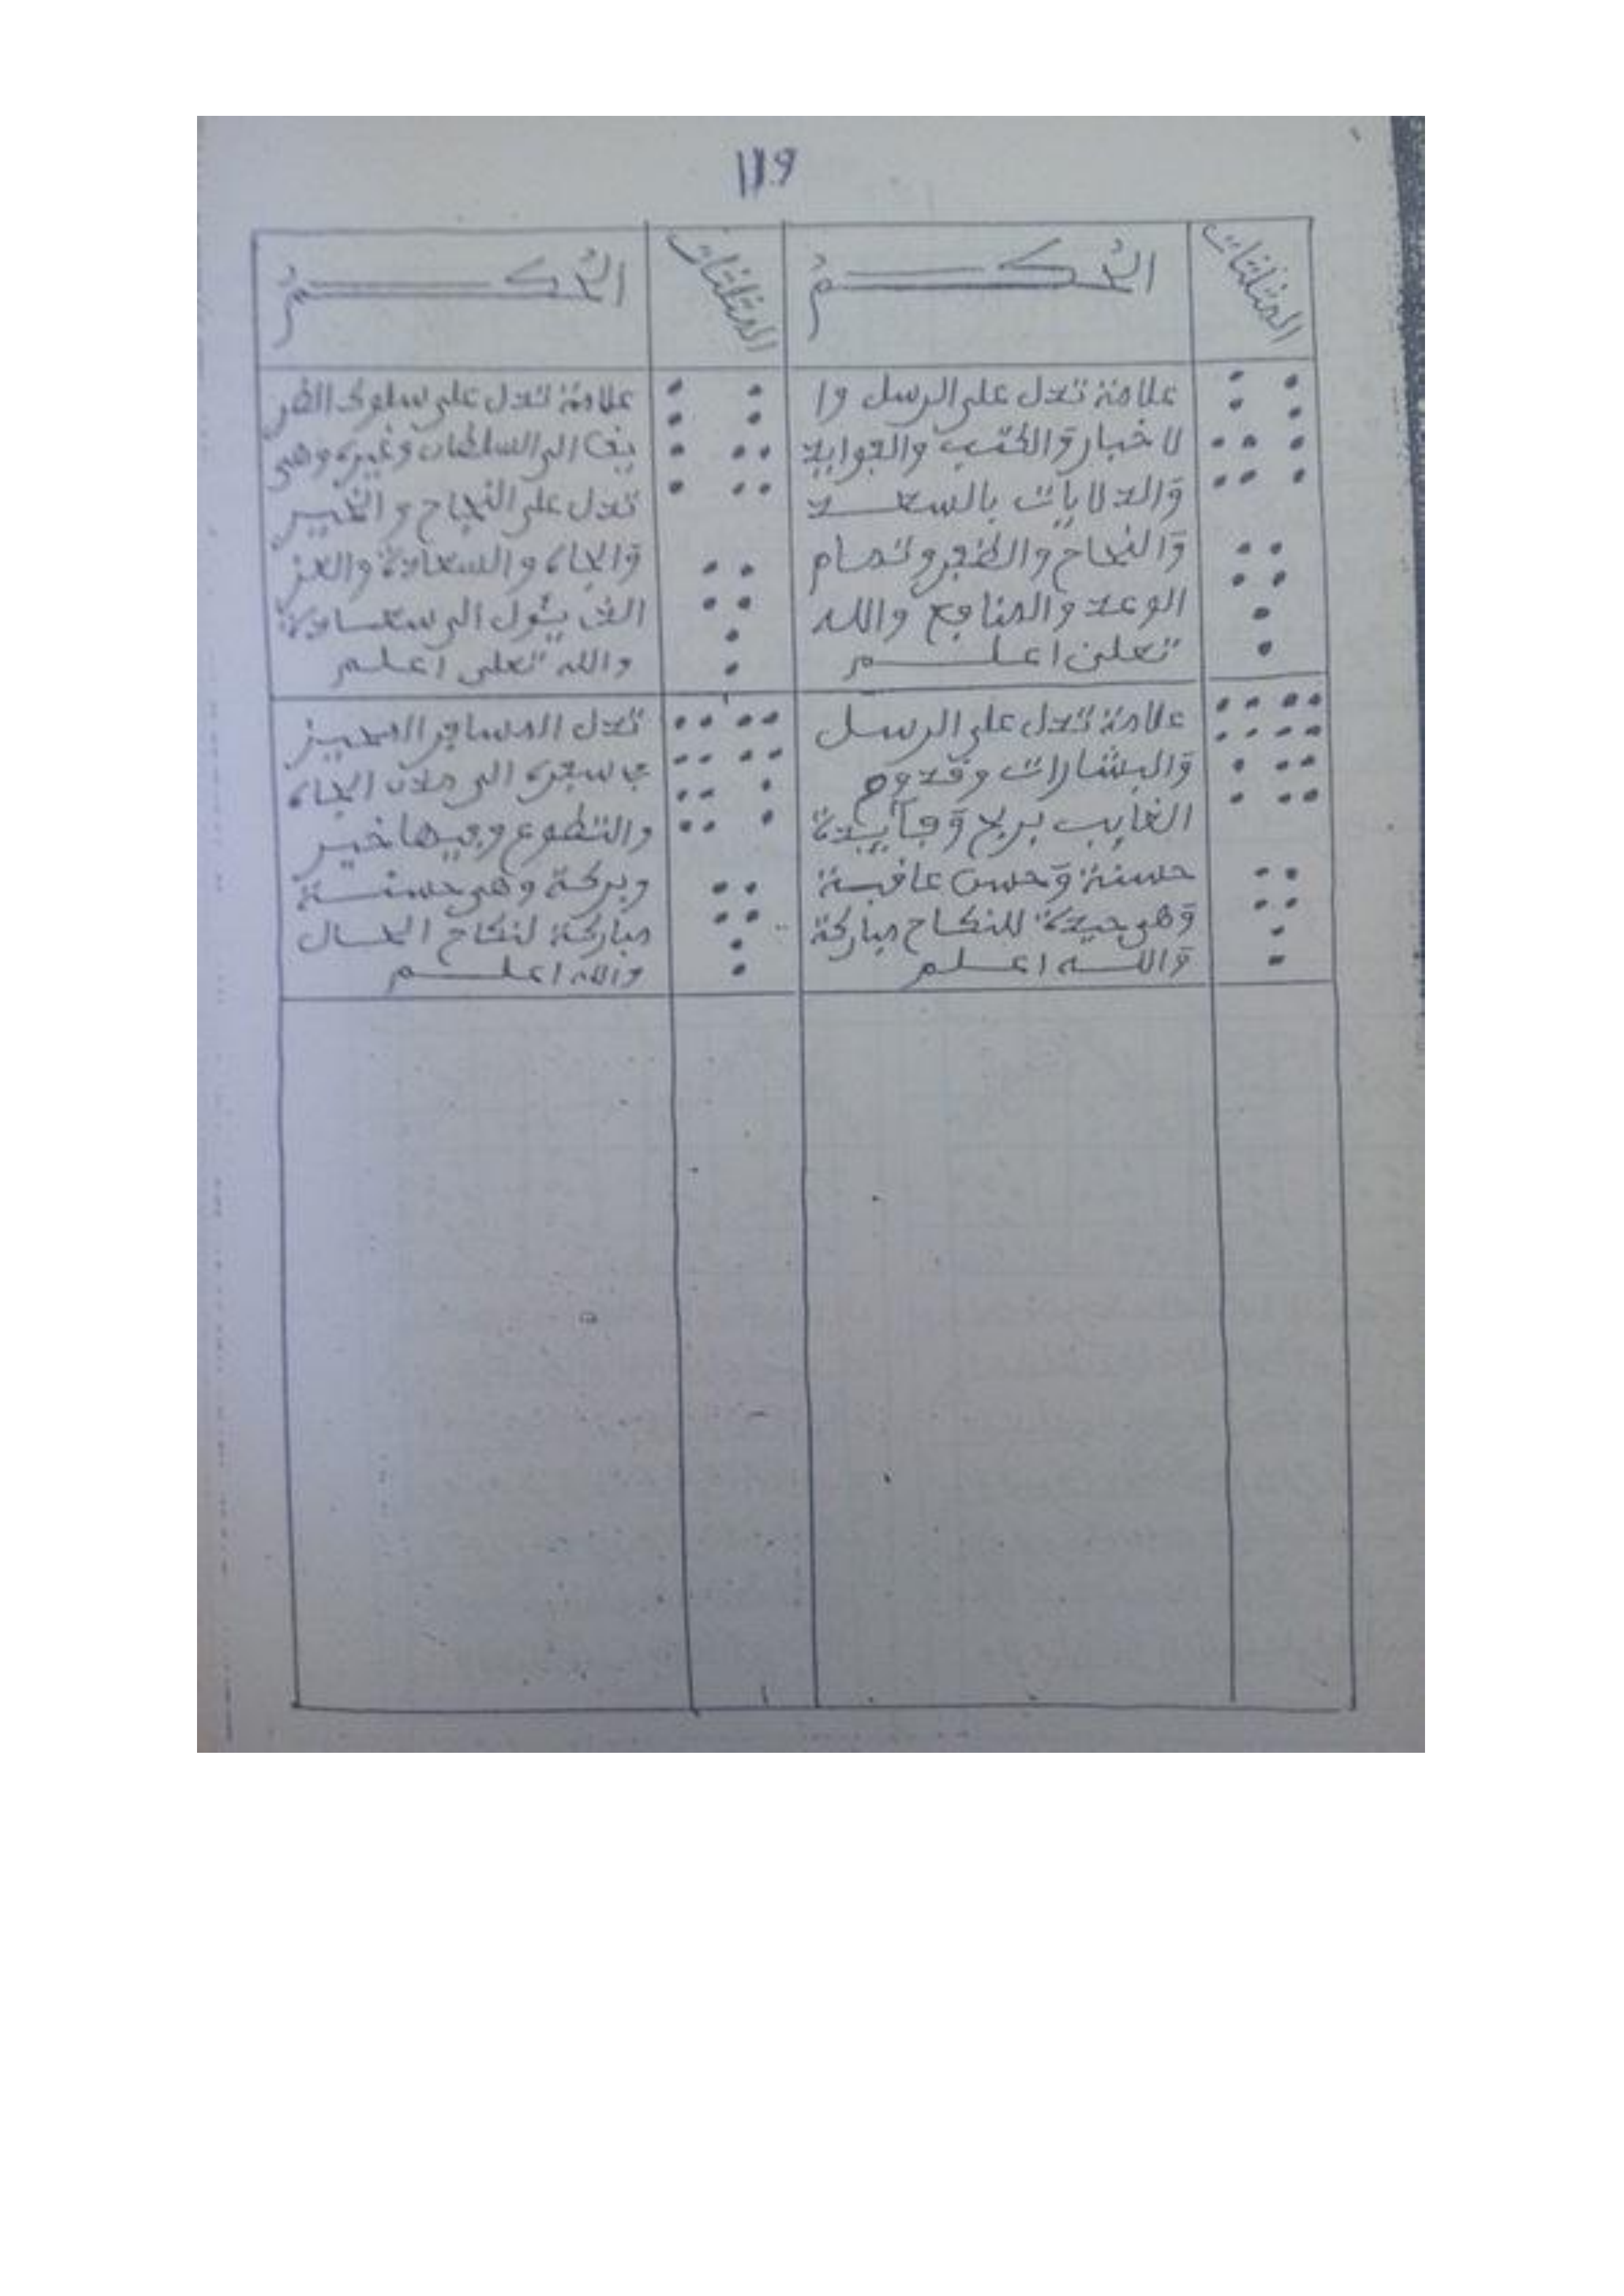 119
المثلثات
الحكم
المثلثات
الحكم
علامة تدل على الرسل وا
لاخبار والكتب والجوابيد
والدلايات بالسعد
والنجاح والظفر وتمام
الوعد والمنافع والله
تعلى اعلم
علامة تدل على سلوك الطر
يف الى السلطان وغيره وهى
تدل على النجاح والخير
والجاه والسعادة والعز
الذ يئول الى سعادة
والله تعلى اعلم
علامة تدل على الرسل
والبشارات وقدوم
الغايب بربح وفاييدة
حسنة وحسن عافية
وهى جيدة للنكاح مباركة
والله اعلم
تدل المسافر العزيز
فى سفره الى مكان الجاه
والتطوع وفيها خير
وبركة وهى حسنة
مباركة لنكاح الحال
والله اعلم